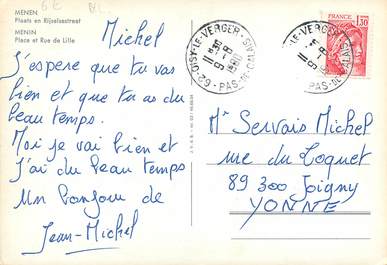 MENEN
Plaats en Rijselsestraat
MENIN
Place et Rue de Lille
Michel
J'espere que tu vas
bien et que tu as du
beau temps.
Moi je vai bien et
j'ai du beau temps
Un bonjour de
Jean-Michel
OISY-LE-VERGER
62-PAS-DE-CALAIS
FRANCE
1,30
Mr Servais Michel
rue du Loquet
89 300 Joigny
YONNE